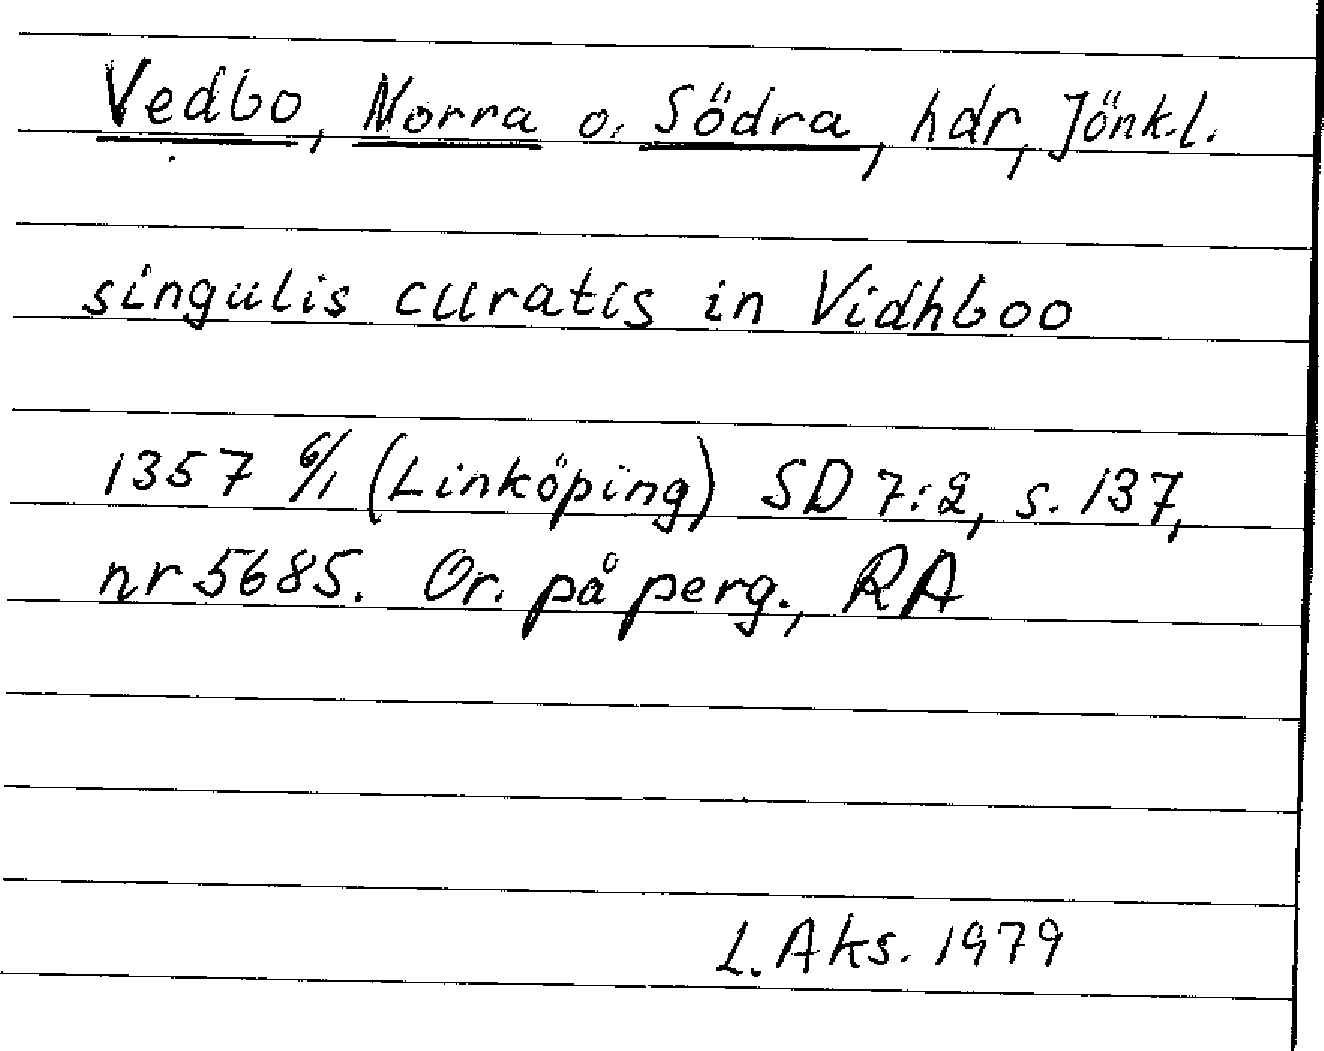 Vedbo, Norra o. Södra, hdr, Jönk.l.
singulis curatis in Vidhboo
1357 6/1 (Linköping) SD 7:2, s. 137,
nr 5685. Or. på perg., RA
L. Aks. 1979